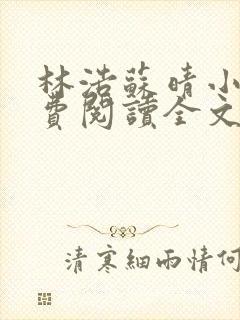 林浩蘇晴小
費閱讀全文
清寒細雨情何